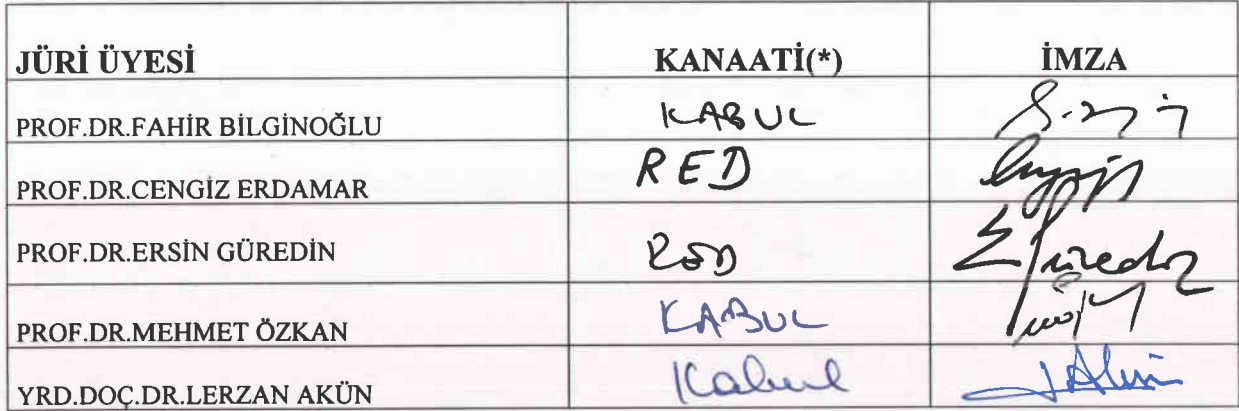 JÜRİ ÜYESİ KANAATİ(*) İMZA
PROF.DR.FAHİR BİLGİNOĞLU KABUL
PROF.DR.CENGİZ ERDAMAR RED
PROF.DR.ERSİN GÜREDİN RED
PROF.DR.MEHMET ÖZKAN KABUL
YRD.DOÇ.DR.LERZAN AKÜN Kabul